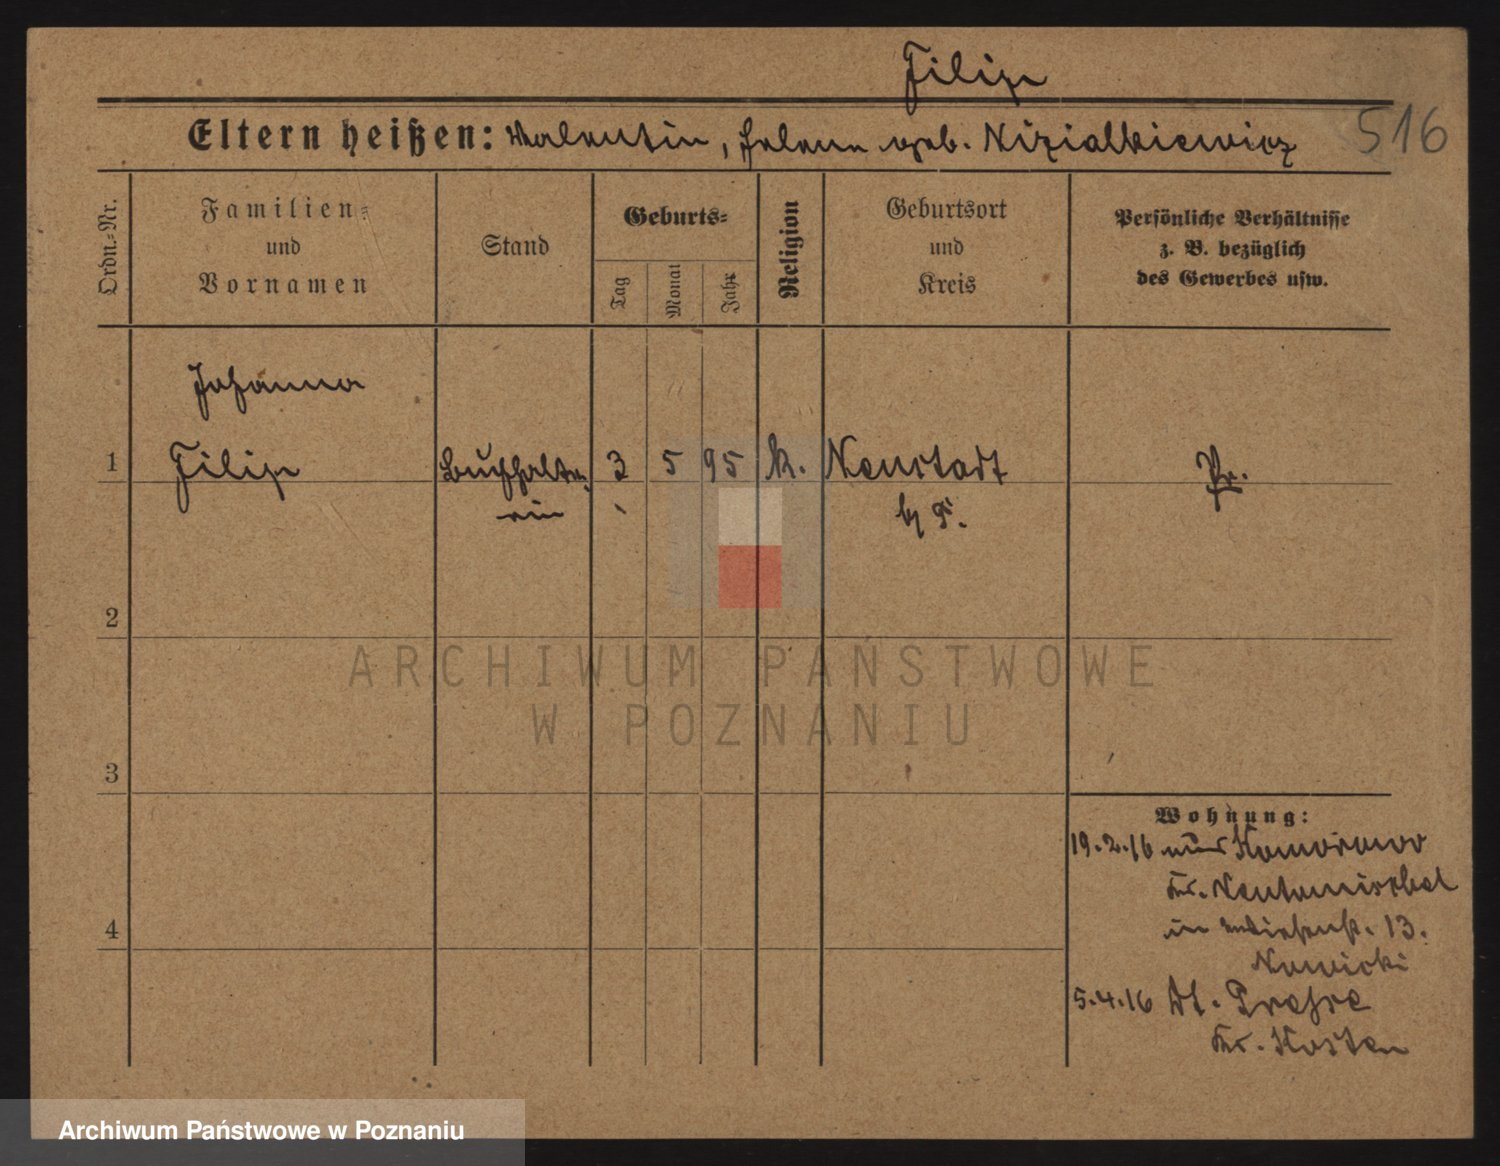 Filip
516
Eltern heißen: Valentin, Helene geb. Nizialkiewicz
Ordn.-Nr.
Familien-
und
Vornamen
Stand
Geburts-
Tag
Monat
Jahr
Religion
Geburtsort
und
Kreis
Persönliche Verhältnisse
z. B. bezüglich
des Gewerbes usw.
Johanna
1 Filip Buchhalte- 3 5 95 k. Neustadt Pr.
rin b/ P.
2
ARCHIWUM PAŃSTWOWE
W POZNANIU
3
Wohnung:
19.2.16 aus Komorowo
Kr. Neutomischel
in 13.
Nowicki
4
5.4.16 Dt. Presse
Kr. Kosten
Archiwum Państwowe w Poznaniu